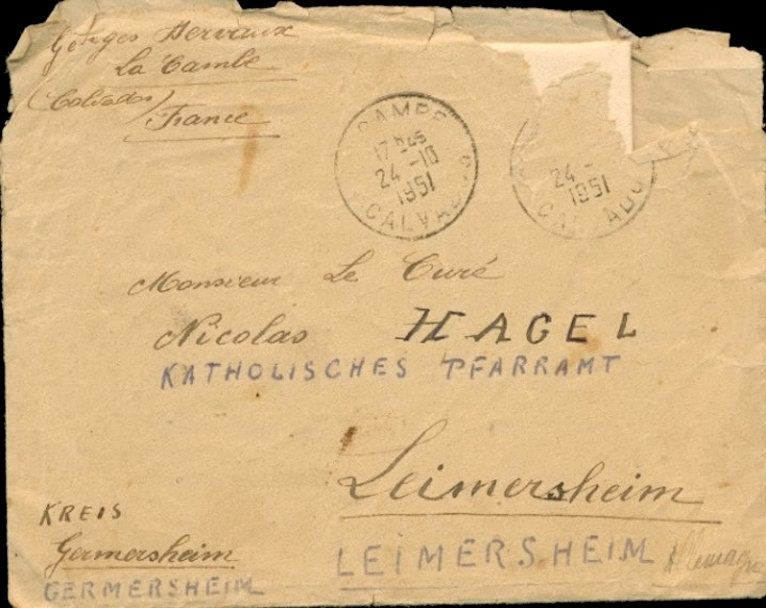 Georges Hervaux
La Cambe
(Calvados)
France
CAMBE
17H45
24-10
1951
CALVADOS
24-
1951
CALVADOS
Monsieur Le Curé
Nicolas HAGEL
KATHOLISCHES PFARRAMT
Leimersheim
KREIS
Germersheim
LEIMERSHEIM Allemagne
GERMERSHEIM